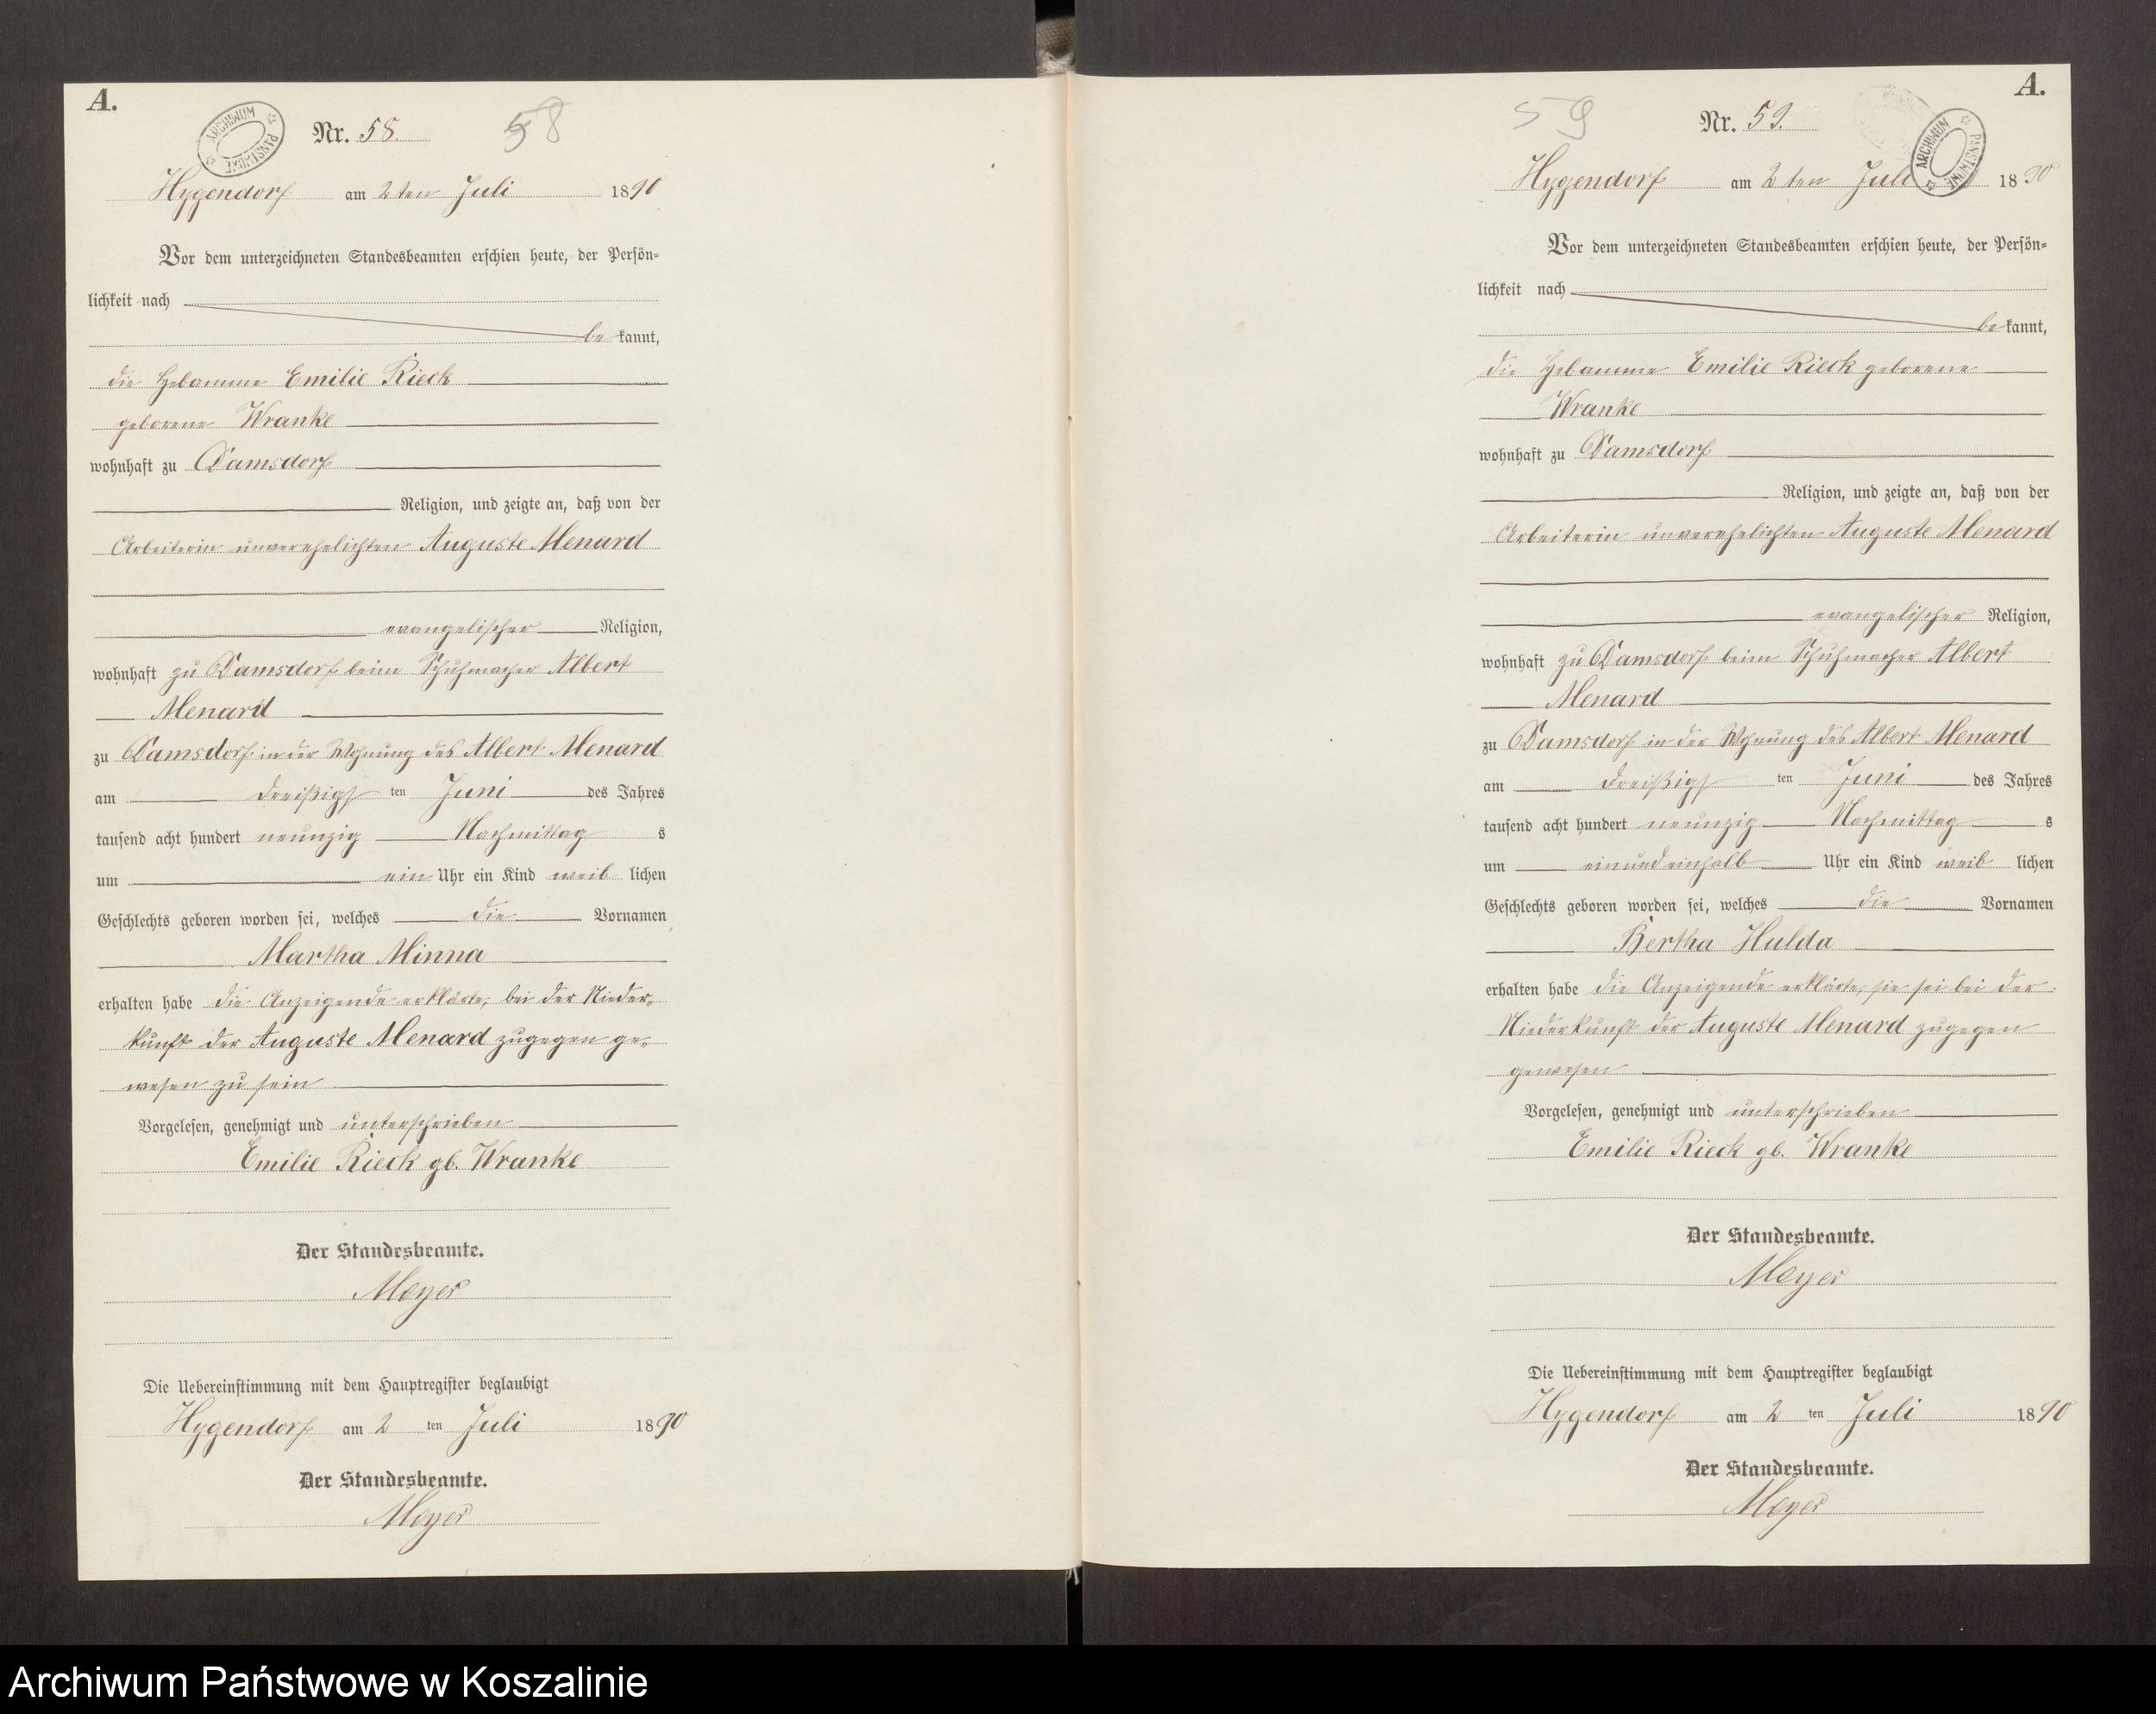 A.
ARCHIWUM PAŃSTWOWE
Nr. 58.
58
Hygendorf am 2ten Juli 1890
Vor dem unterzeichneten Standesbeamten erschien heute, der Persön-
lichkeit nach
be kannt,
die Hebamme Emilie Rieck
geborene Wranke
wohnhaft zu Damsdorf
Religion, und zeigte an, daß von der
Arbeiterin unverehelichten Auguste Menard
evangelischer Religion,
wohnhaft zu Damsdorf beim Schuhmacher Albert
Menard
zu Damsdorf in der Wohnung des Albert Menard
am dreißigst ten Juni des Jahres
tausend acht hundert neunzig Nachmittag s
um ein Uhr ein Kind weib lichen
Geschlechts geboren worden sei, welches die Vornamen
Martha Minna
erhalten habe die Anzeigende erklärte, bei der Nieder-
kunft der Auguste Menard zugegen ge-
wesen zu sein
Vorgelesen, genehmigt und unterschrieben
Emilie Rieck gb. Wranke
Der Standesbeamte.
Meyer
Die Uebereinstimmung mit dem Hauptregister beglaubigt
Hygendorf am 2 ten Juli 1890
Der Standesbeamte.
Meyer
A.
59
Nr. 59.
ARCHIWUM PAŃSTWOWE
Hygendorf am 2ten Juli 1890
Vor dem unterzeichneten Standesbeamten erschien heute, der Persön-
lichkeit nach
be kannt,
die Hebamme Emilie Rieck geborene
Wranke
wohnhaft zu Damsdorf
Religion, und zeigte an, daß von der
Arbeiterin unverehelichten Auguste Menard
evangelischer Religion,
wohnhaft zu Damsdorf beim Schuhmacher Albert
Menard
zu Damsdorf in der Wohnung des Albert Menard
am dreißigst ten Juni des Jahres
tausend acht hundert neunzig Nachmittag s
um einundeinhalb Uhr ein Kind weib lichen
Geschlechts geboren worden sei, welches die Vornamen
Bertha Hulda
erhalten habe die Anzeigende erklärte, sie sei bei der
Niederkunft der Auguste Menard zugegen
gewesen
Vorgelesen, genehmigt und unterschrieben
Emilie Rieck gb. Wranke
Der Standesbeamte.
Meyer
Die Uebereinstimmung mit dem Hauptregister beglaubigt
Hygendorf am 2 ten Juli 1890
Der Standesbeamte.
Meyer
Archiwum Państwowe w Koszalinie